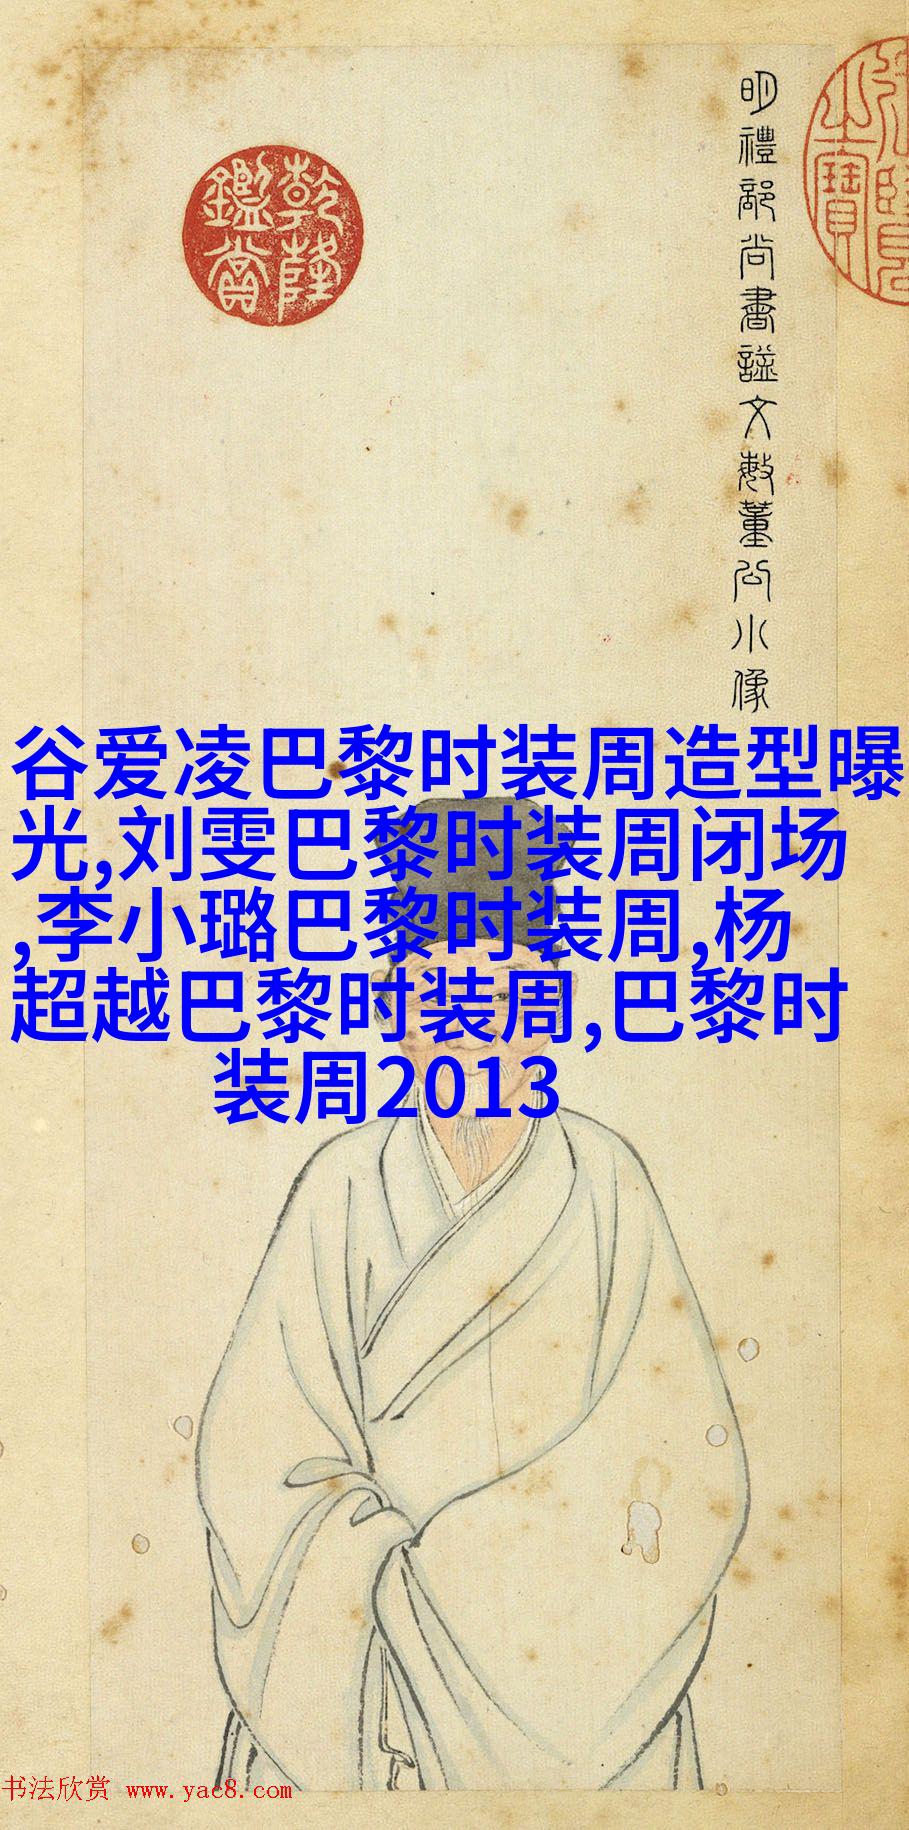 明禮部尚書諡文敏董公小像
乾隆
鑑賞
谷爱凌巴黎时装周造型曝
光,刘雯巴黎时装周闭场
,李小璐巴黎时装周,杨
超越巴黎时装周,巴黎时
装周2013
书法欣赏 www.yac8.com